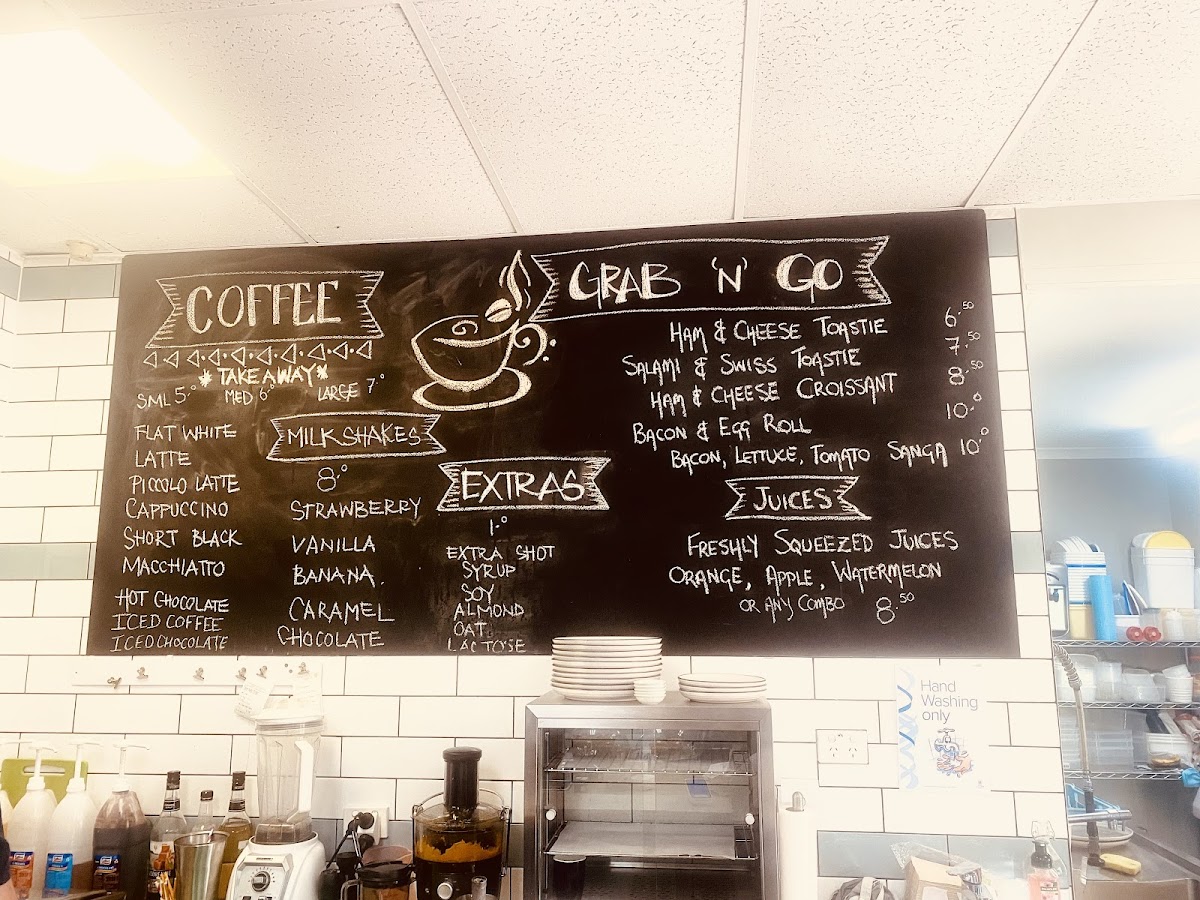 COFFEE
*TAKEAWAY*
SML 5.⁰ MED 6⁰ LARGE 7.⁰
FLAT WHITE
LATTE
PICCOLO LATTE
CAPPUCCINO
SHORT BLACK
MACCHIATTO
HOT CHOCOLATE
ICED COFFEE
ICED CHOCOLATE
MILKSHAKES
8.⁰
STRAWBERRY
VANILLA
BANANA.
CARAMEL
CHOCOLATE
EXTRAS
1.⁰
EXTRA SHOT
SYRUP
SOY
ALMOND
OAT
LACTOSE
GRAB 'N' GO
HAM & CHEESE TOASTIE 6.⁵⁰
SALAMI & SWISS TOASTIE 7.⁵⁰
HAM & CHEESE CROISSANT 8.⁵⁰
BACON & EGG ROLL 10.⁰
BACON, LETTUCE, TOMATO SANGA 10.⁰
JUICES
FRESHLY SQUEEZED JUICES
ORANGE, APPLE, WATERMELON
OR ANY COMBO 8.⁵⁰
Hand
Washing
only